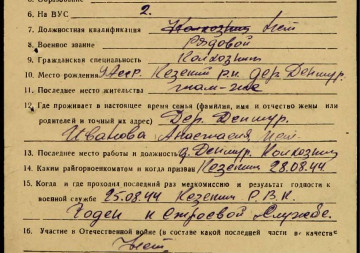 6. Образование
На ВУС 2.
7. Должностная квалификация Колхозник нет
8. Военное звание рядовой
9. Гражданская специальность Колхозник
10. Место рождения Кезский р-н. дер. Денмур.
11. Последнее место жительства там-же
12. Где проживает в настоящее время семья (фамилия, имя и отчество жены или
родителей и точный их адрес) Дер. Денмур.
Иванова Анастасия
13. Последнее место работы и должность д. Денмур. Колхозник
14. Каким райгорвоенкоматом и когда призван Кезским 28.08.44
15. Когда и где проходил последний раз медкомиссию и результат годности к
военной службе 25.08.44 Кезским Р.В.К.
Годен к строевой службе.
16. Участие в Отечественной войне (в составе какой последней части и в качестве
Нет